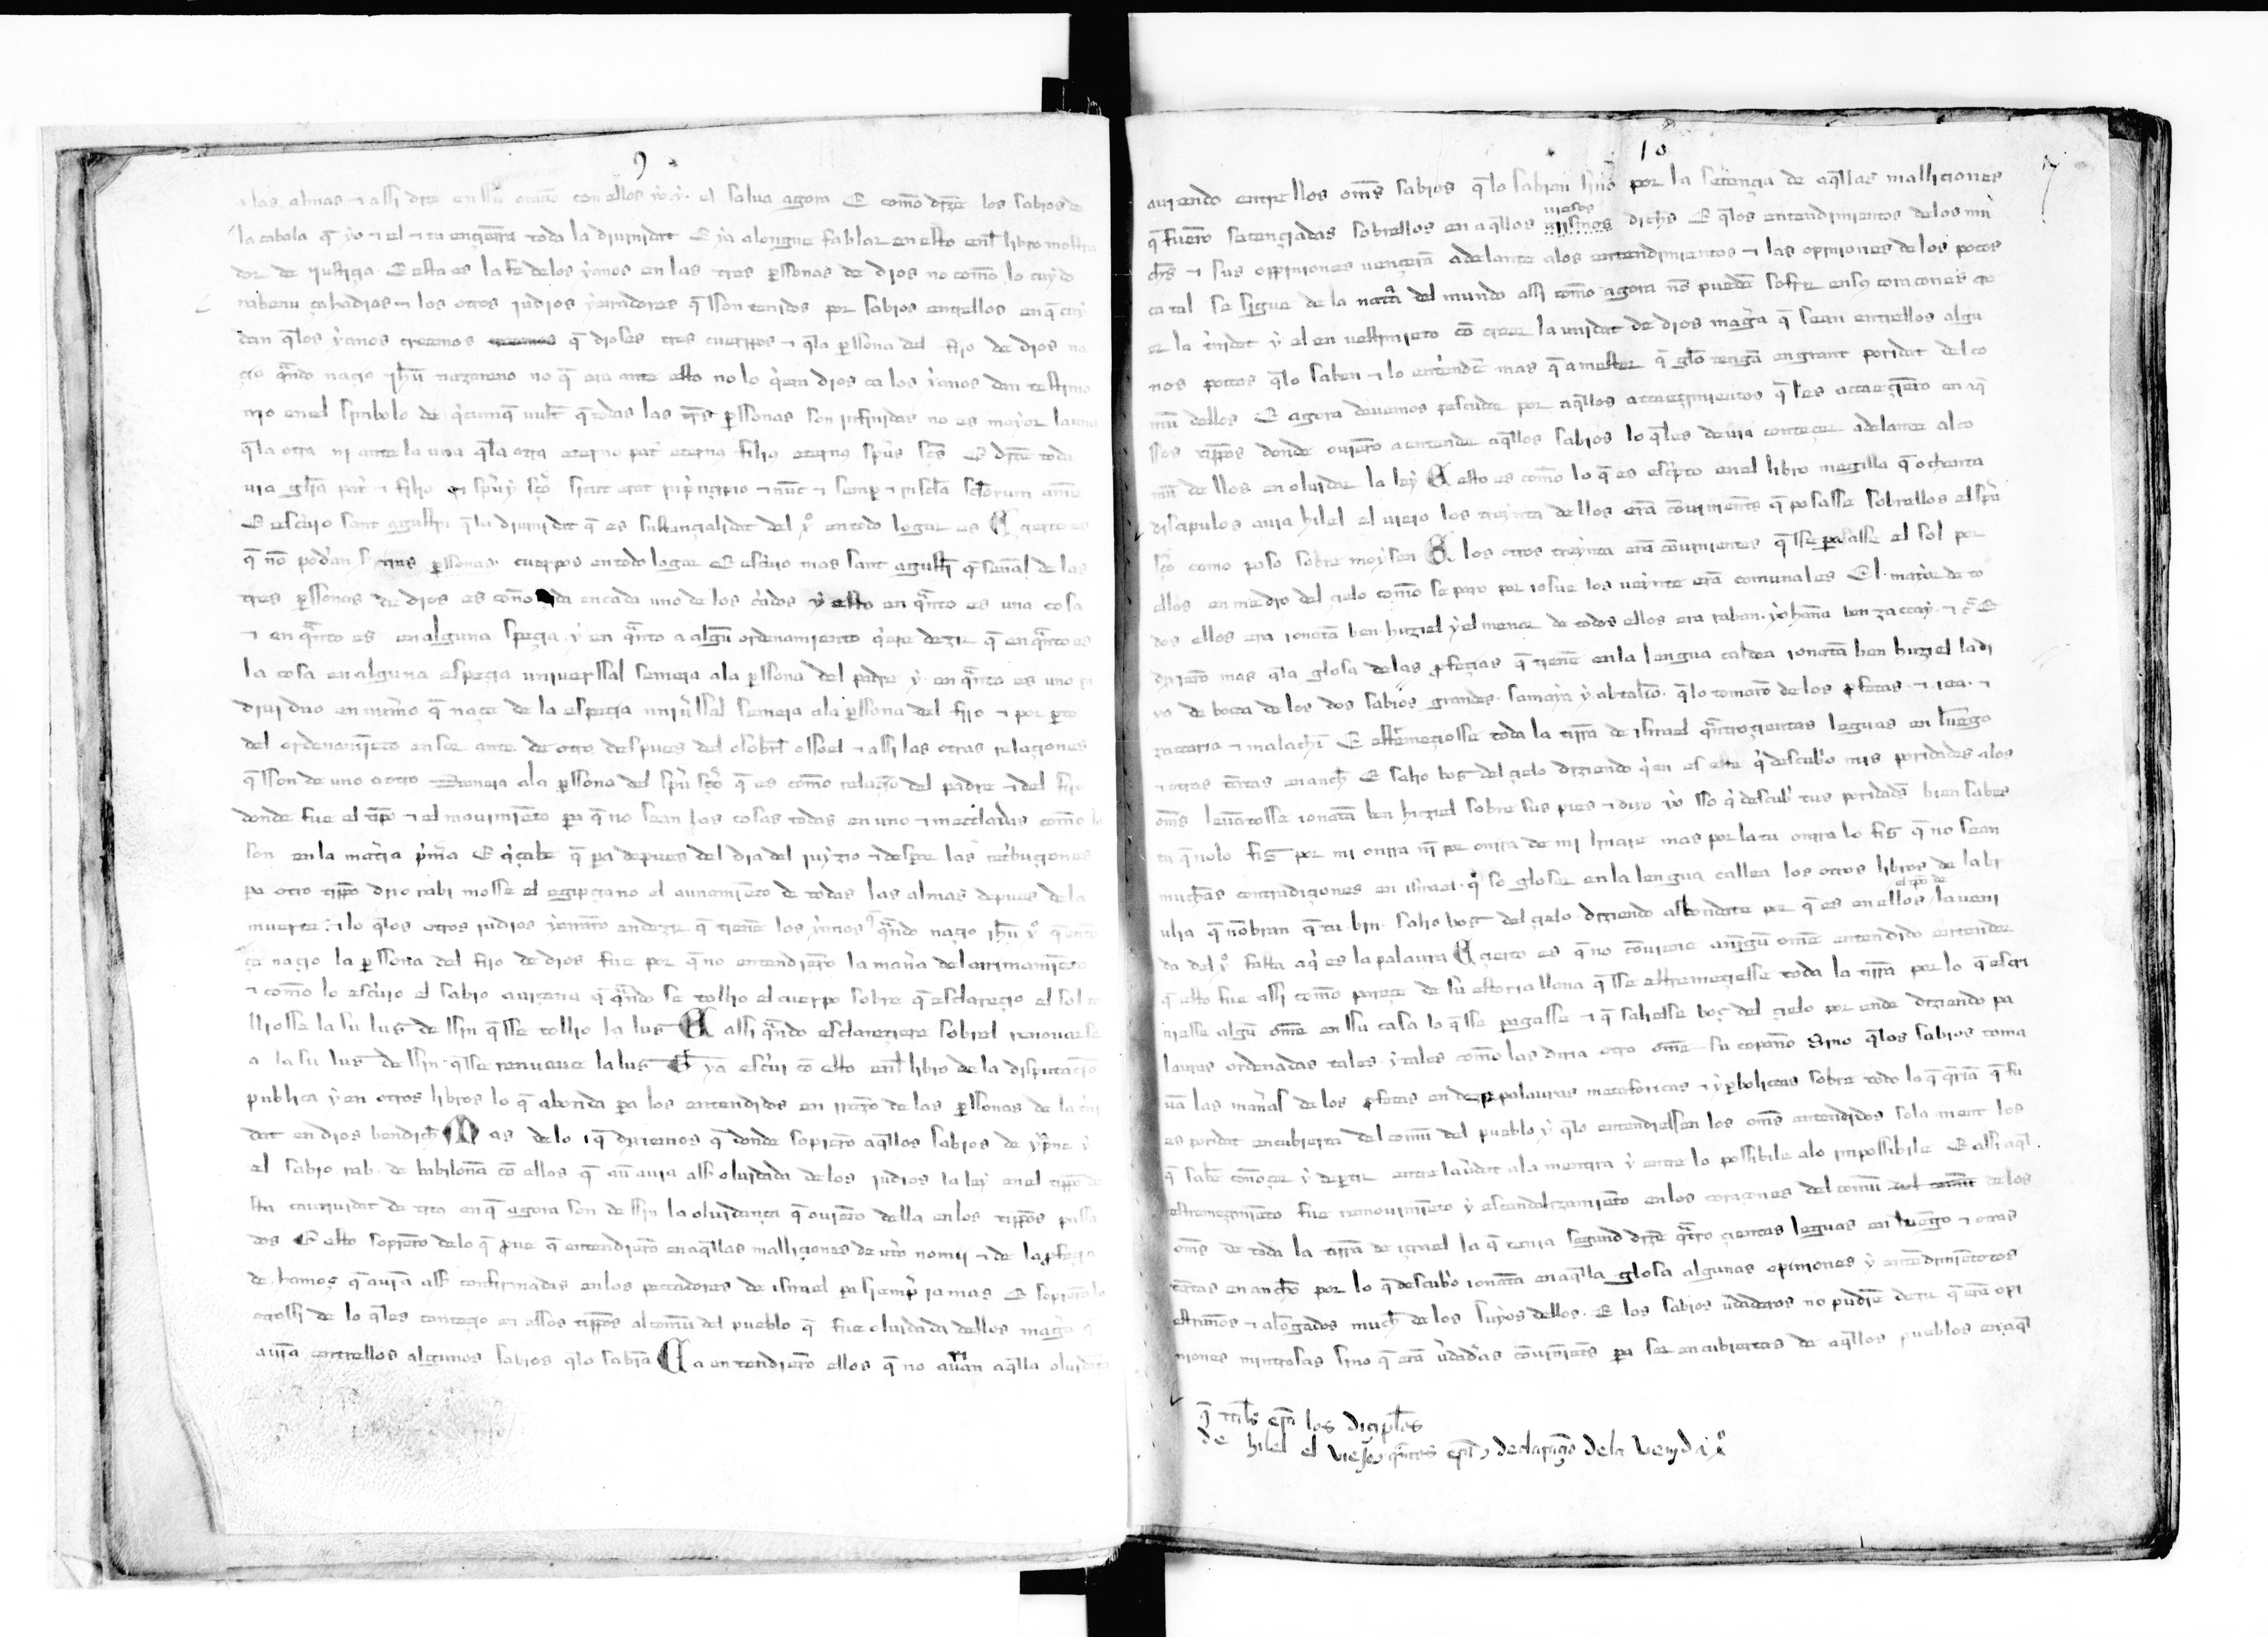 9
a las almas ⁊ assi dize en ssu oraçio con ellos yo y el salua agora E como dizẽ los sabios de
la cabala q̃ yo ⁊ el ⁊ tu ençierra toda la diuinidat E ya alongue fablar en esto enl libro mostra
dor de justiçia. E esta es la fe de los xp̃anos en las tres p̱ssonas de dios no como lo cuydo
rabenu çahadias ⁊ los otros judios yerradores q̃ sson tenidos por sabios entrellos en q̃ cuy
dan q̃los xp̃anos creemos q̃ dios es tres cuerpos ⁊ q̃la p̱ssona del fijo de dios na
çio qñdo naçio jhũ nazareno no q̃ era ante esto no lo q̃era dios ca los xp̃anos dan testimo
nio en el simbolo de q̃cumq̃ uult q̃ todas las tres p̱ssonas son infinidas no es mayor la una
q̃la otra ni ante la una q̃la otra eterno pat̃ eternus filius eternus sp̃us sc̃s E dizẽ toda
uia gl̃ia pat̃ ⁊ filio sp̃ui sc̃o sicut erat in p̃nçipio ⁊ nũc ⁊ semp̱ ⁊ in sc̃la sc̃lorum amẽ
E escriuio sant agustin q̃ la diuinidat q̃ es sustançialidat del xº en todo logar es E çierto es
q̃ nõ podrian s tres p̱ssonas cuerpos en todo logar E escriuio mas sant agustĩ q̃ señal de las
tres p̱ssonas de dios es cõnoçida en cada uno de los criados y esto en q̃nto es una cosa
⁊ en q̃nto es en alguna speçia y en q̃nto a algũ ordenamiento q̃ere dezir q̃ en q̃nto es
la cosa en alguna espeçia uniuerssal semeja a la p̱ssona del padre y en q̃nto es uno in
diuiduo en numero q̃ naçe de la espeçia uniũssal semeja a la p̱ssona del fijo ⁊ por p̱te
del ordenamiẽto en ser ante de otro despues del o sobrel o ssol ⁊ assi las otras relaçiones
q̃ sson de uno a otro Semeja a la p̱ssona del sp̃u sc̃o q̃ es como relaçiõ del padre ⁊ del fijo
donde fue el tp̃o ⁊ el mouimiẽto pa q̃ no sean las cosas todas en uno ⁊ mezcladas como lo
son en la mat̃ia p̃ma E q̃çabe q̃ pa depues del dia del juyzio ⁊ despar las retribuçiones
pa otro tp̃o dijo rabi mosse el egipçiano el aunamiẽto de todas las almas depues de la
muerte. ⁊ lo q̃los otros judios yerrarõ en dezir q̃ tienẽ los xp̃anos q̃ qñdo naçio jhũ xº q̃ 
çe naçio la p̱ssona del fijo de dios fue por q̃ no entendierõ la man̄a del arrimamiẽto
⁊ como lo escriuio el sabio auiçena q̃ qñdo se tollio el cuerpo sobre q̃ esclareçio el sol to
lliosse la su luz de ssin q̃sse tollio la luz E assi qñdo esclareçiere sobrel renouarse
a la su luz de ssin q̃sse renueue la luz E ya escriui cõ esto enl libro de la disputaçiõ
publica y en otros libros lo q̃ abonda pa los entendidos en razõ de las p̱ssonas de la tri
dat en dios bendicho Mas de lo q̃ diximos q̃ donde sopierõ aq̃llos sabios de yp̃ne y
el sabio rab de babilonia cõ ellos q̃ aũ auia assi oluidada de los judios la ley en el tp̃o de
sta catiuidat de tito en q̃ agora son de ssin la oluidança q̃ ouierõ della en los tp̃os passa
dos E esto sopierõ de lo q̃ ꝓue q̃ entendierõ en aq̃llas maldiçiones de ⁊ de la ꝓfeçia
de hamoç q̃ auiã assi confirmadas en los peccadores de israel pa siemp̃ jamas E sopierõ lo
otrossi de lo q̃les conteçio en essos tp̃os al comũ del pueblo q̃ fue oluidada dellos mag̃a q̃
auia entrellos algunos sabios q̃lo sabiã Ca entendierõ ellos q̃ no aurian aq̃lla oluidança
10
auiendo entrellos om̃s sabios q̃ lo sabian sino por la setençia de aq̃llas malliçiones
q̃ fuerõ setençiadas sobrellos en aq̃llos uiesos dichs E q̃los entendimientos de los mu
chs ⁊ sus opiniones uençerã adelante a los entendimientos ⁊ las opiniones de los pocos
ca tal se sigue de la nat̃a del mundo assi como agora nõ puedẽ sofrir en sus coraçones cre
er la t̃nidat y el en uestimiẽto cõ creer la unidat de dios mag̃a q̃ sean entrellos algu
nos pocos q̃lo saben ⁊ lo entiendẽ mas q̃ a mester q̃ glo tengã en grant poridat del co
mũ dellos E agora deuemos rescudir por aq̃llos acaeçimientos q̃ les acaeçierõ en aq̃
ssos tp̃os donde ouierõ a entender aq̃llos sabios lo q̃les deuia conteçer adelante al co
mũ dellos en oluidar la ley E esto es como lo q̃ es escripto en el libro megilla q̃ ochenta
disçipulos auia hilel el uiejo los treynta dellos erã cõuinientes q̃ posasse sobrellos el sp̃u
sc̃o como poso sobre moysen E los otros treynta erã cõuinientes q̃ sse parasse el sol por
ellos en medio del çielo como se paro por josue los ueynte erã comunales El mayor de to
dos ellos era jonatã ben huziel y el menor de todos ellos era raban yohanã ben zaccay ⁊ cª E
dixierõ mas q̃la glosa de las ꝓfeçias q̃ tienẽ en la lengua caldea jonatã ben huziel la di
xo de boca de los dos sabios grandes samaya y abtalio q̃lo tomarõ de los ꝓfetas ⁊
zaccaria ⁊ malachi E estremeçiosse toda la tierra de israel q̃troçientas leguas en luengo
⁊ otras tãtas en ancho E salio boz del çielo diziendo q̃en es este q̃ descubrio mis poridades a los
om̃s leuãtosse jonatã ben huziel sobre sus pies ⁊ dixo yo sso q̃ descubri tus poridads bien sabes
tu q̃ no lo fiz por mi onrra nĩ por onrra de mi linaje mas por la tu onrra lo fiz q̃ no sean
muchas contradiçiones en israel. q̃so glosar en la lengua caldea los otros libros de la bi
blia q̃ nõbran q̃tu bin salio boz del çielo diziendo abondate por q̃ es en ellos el tp̃o de la ueni
da del xº fasta aq̃ es la palaura E çierto es q̃ no cõuiene a nĩgũ ome entendido entender
q̃ esto fue assi como pareçe de su estoria llana q̃ sse estremeçiesse toda la tierra por lo q̃ escri
uiesse algũ ome en ssu casa lo q̃sse pagasse ⁊ q̃ saliesse boz del çielo por ende diziendo pa
lauras ordenadas tales y tales como las diria otro ome su cotano Sino q̃los sabios toma
uã las man̄as de los ꝓfetas en dezir palauras metaforicas ⁊ yp̱bolicas sobre todo lo q̃ q̃riã q̃ fu
es poridat encubierta del comũ del pueblo y q̃lo entendiessen los om̃s entendidos sola ment los
q̃ sabẽ conoçer y departir entre la ũdat a la mentira y entre lo possibile a lo impossibile E assi aq̃l
estremeçimiẽto fue remouimiẽto y escandalizamiẽto en los coraçones del comũ de los
om̃s de toda la tierra de israel la q̃ tenia segund dizẽ q̃tro çientas leguas en luengo ⁊ otras
tãtas en ancho por lo q̃ descubrio jonatã en aq̃lla glosa algunas opiniones y entendimiẽtos
estrãnos ⁊ alõgados muchs de los suyos dellos. E los sabios ũdaderos no pudiẽ dezir q̃ erã opi
niones mintrosas sino q̃ erã ũdad̃as cõuiniẽts pa ser encubiertas de aq̃llos pueblos en aq̃l
los diçiplos
de hilel el viejo declaraçiõ de la de xº